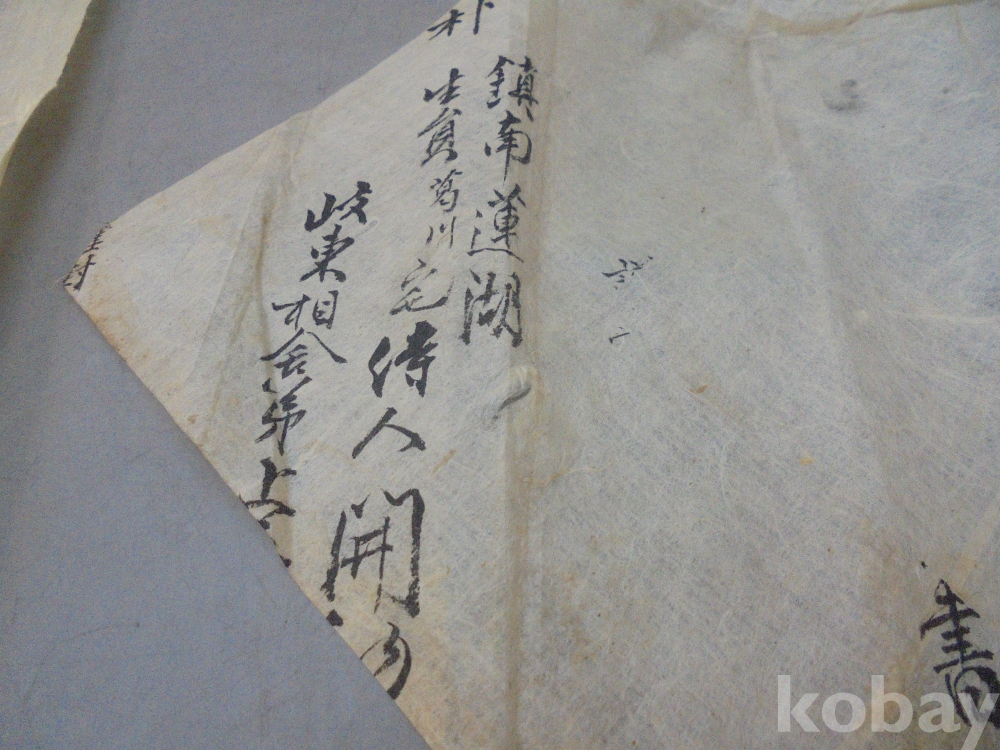 鎮南蓮湖
朴
生員葛川宅侍人開
岐東相舍弟上
封
書
kobay